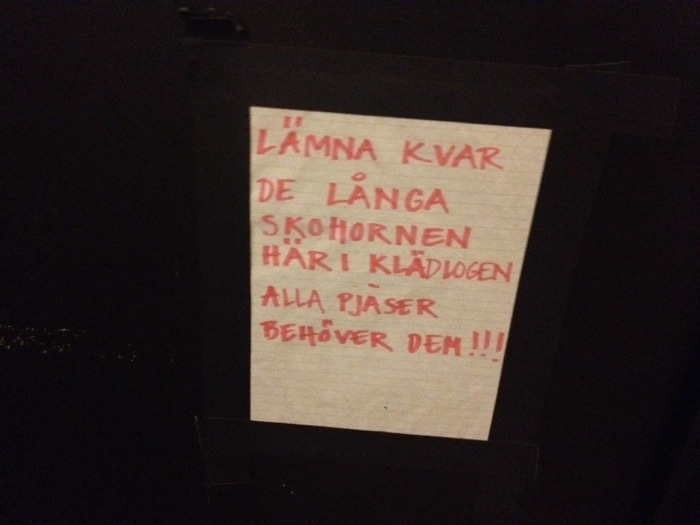 LÄMNA KVAR
DE LÅNGA
SKOHORNEN
HÄR I KLÄDLOGEN
ALLA PJÄSER
BEHÖVER DEM!!!